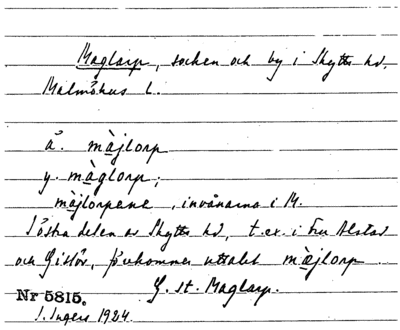 Maglarp, socken och by i Skytts hd,
Malmöhus l.
ä. màjlorp
y. màglorp;
màjlorpene, invånarna i M.
I östra delen av Skytts hd, t.ex. i Fru Alstad
och Gislöv, förekommer uttalet mæ̀jlorp.
G. st. Maglarp.
Nr 5815.
I. Ingers 1924.